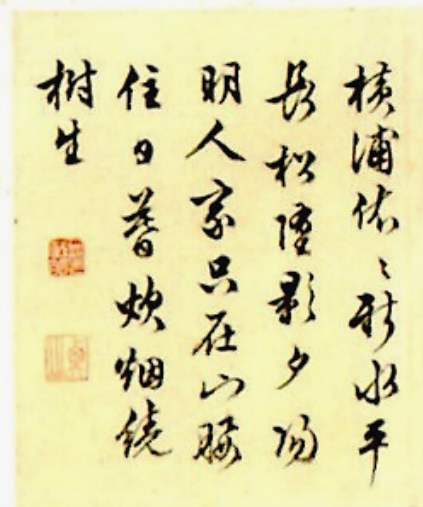 橫浦依〻新水平
長松墮影夕陽
明人家只在山腰
住日暮炊烟繞
樹生